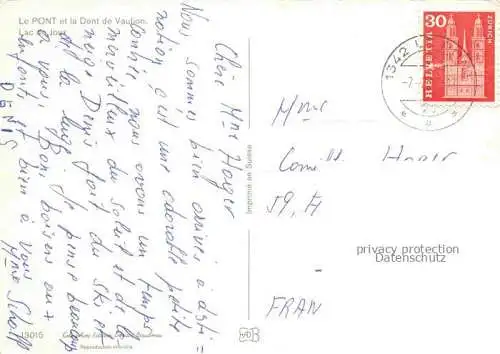 Le PONT et la Dent de Vaulion.
Lac de Joux
Chère Mme Hager
Nous sommes bien arrivés à desti=
nation, c'est une adorable petite
comme nous avons un temps
merveilleux du soleil et de la
neige Denis fait du ski
et la luge. Je pense beaucoup
à vous, Bons baisers aux
enfants et bien à vous
Mme
DENIS
13015
Reproduction interdite
Imprimé en Suisse
30
HELVETIA
ZÜRICH
1342
Mme
59,
FRAN
privacy protection
Datenschutz